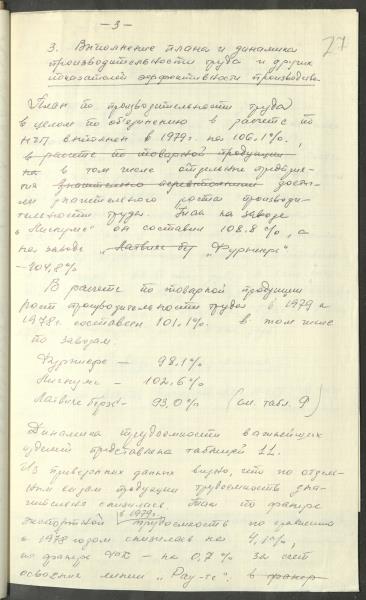 — 3 —
27
3. Выполнение плана и динамика
производительности труда и других
показателей эффективности производства
План по производительности труда
в целом по объединению в расчете по
НЧП выполнен в 1979 г. на 106,1%,
в расчете по товарной продукции
на в том числе отдельные предприя-
тия значительно перевыполнили достиг-
ли значительного роста производи-
тельности труда. Так на заводе
„Лигнумс" он составил 108,8%, а
на заводе „Латвияс бер „Фурниерс"
– 104,8%
В расчете по товарной продукции
рост производительности труда в 1979 к
1978 г. составил 101,1%. в том числе
по заводам:
Фурниерс — 98,1%
Лигнумс — 102,6%
Латвияс берзс — 93,0% (см. табл. 9)
Динамика трудоемкости важнейших
изделий представлена таблицей 11.
Из приведенных данных видно, что по отдель-
ным видам продукции трудоемкость зна-
чительно снизилась. Так по фанере
в 1979 г.
экспортной трудоемкость по сравнению
с 1978 годом снизилась на 4,1%,
по фанере ФОК – на 0,7% за счет
освоения линии „Рау-те". в фанер